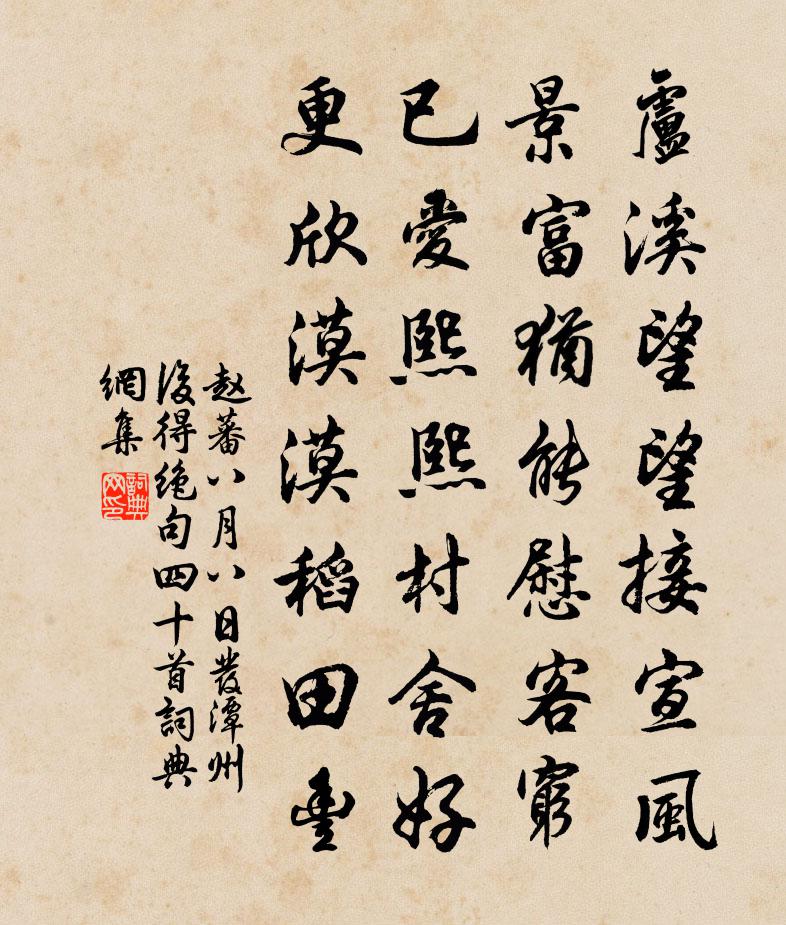 盧溪望望接宣風
景富猶能慰客窮
已愛熙熙村舍好
更欣漠漠稻田豐
赵蕃八月八日發潭州
後得絶句四十首詞典
網集
詞典
网印